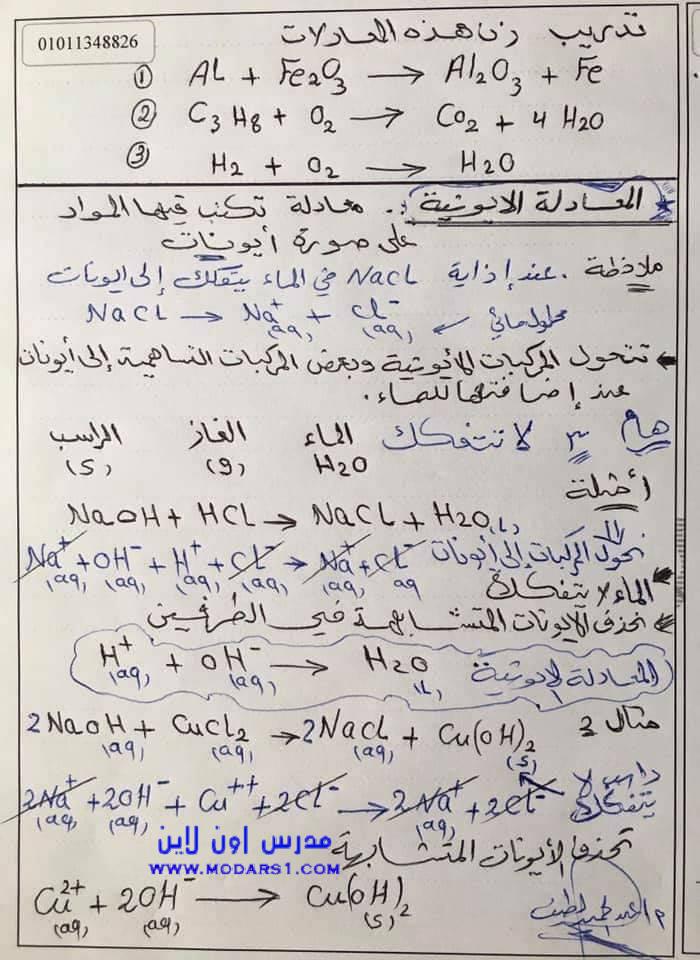 01011348826
تدريب زن هذه المعادلات
① AL + Fe₂O₃ → Al₂O₃ + Fe
② C₃H₈ + O₂ → CO₂ + 4 H₂O
③ H₂ + O₂ → H₂O
المعادلة الايونية : معادلة تكتب فيها المواد
على صورة أيونات
ملاحظة . عند إذابة NaCL في الماء يتفكك إلى ايونات
NaCL → Na⁺(aq) + CL⁻(aq) محلول مائي
تتحول المركبات الأيونية وبعض المركبات التساهمية إلى أيونات
عند إضافتها للماء .
هام لا تتفكك الماء الغاز الراسب
H₂O (g) (s)
أمثلة
NaOH + HCL → NaCL + H₂O(L)
نحول المركبات إلى أيونات
Na⁺(aq) + OH⁻(aq) + H⁺(aq) + CL⁻(aq) → Na⁺(aq) + CL⁻ aq
الماء لا يتفكك
نحذف الايونات المتشابهة في الطرفين
H⁺(aq) + OH⁻(aq) → H₂O(L) المعادلة الايونية
مثال 2
2NaOH(aq) + CuCL₂(aq) → 2NaCL(aq) + Cu(OH)₂(s)
راسب لا يتفكك
2Na⁺(aq) + 2OH⁻(aq) + Cu⁺⁺ + 2CL⁻ → 2Na⁺(aq) + 2CL⁻
نحذف الأيونات المتشابهة
مدرس اون لاين
WWW.MODARS1.COM
Cu²⁺(aq) + 2OH⁻(aq) → Cu(OH)₂(s)